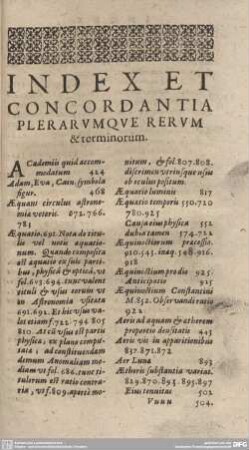 INDEX ET
CONCORDANTIA
PLERARVMQVE RERVM
& terminorum.
Academiis quid accom-
modatum 424
Adam, Eva, Cain, symbola
figur. 468
Æquans circulus astrono-
mia veteris. 672.766.
781
Æquatio. 691. Nota de titu-
lis vel notis aequatio-
num. Quando composita
est aquatio ex suis parti-
bus, physicâ & opticâ, ut
fol. 693.694. tunc valent
tituli & usus eorum ut
in Astronomia usitata
691.692. Et hic usus va-
let etiam f. 722. 794 805
810. At si usus est partis
physica, ex plano computa-
tais; ad constituendam
demum Anomaliam me-
diam ut fol. 686. tunc ti-
tulorum est ratio contra-
ria, ut f. 809. aperte mo-
nitum, & fol. 807.808.
discrimen utriusque usus
ob oculus positum.
Æquatio luminis 817
Æquatio temporis 550.720
780.925
Causatium physica 552
dubia tamen 574.722
Æquinoctiorum præcessio.
910.545. inaq. 548.916
918
Æquinoctium prodit 925
Anticipatio 925
Æquinoctium Constantini
M. 852. Observandi ratio
922
Aeris ad aquam & atherem
proportio densitatis 945
Aeris vis in apparitionibus
857.871.872
Aer Luna 893
Ætheris substantia variat.
829.870.893.895.897
Eius tenuitas 502
Vuuu 504.